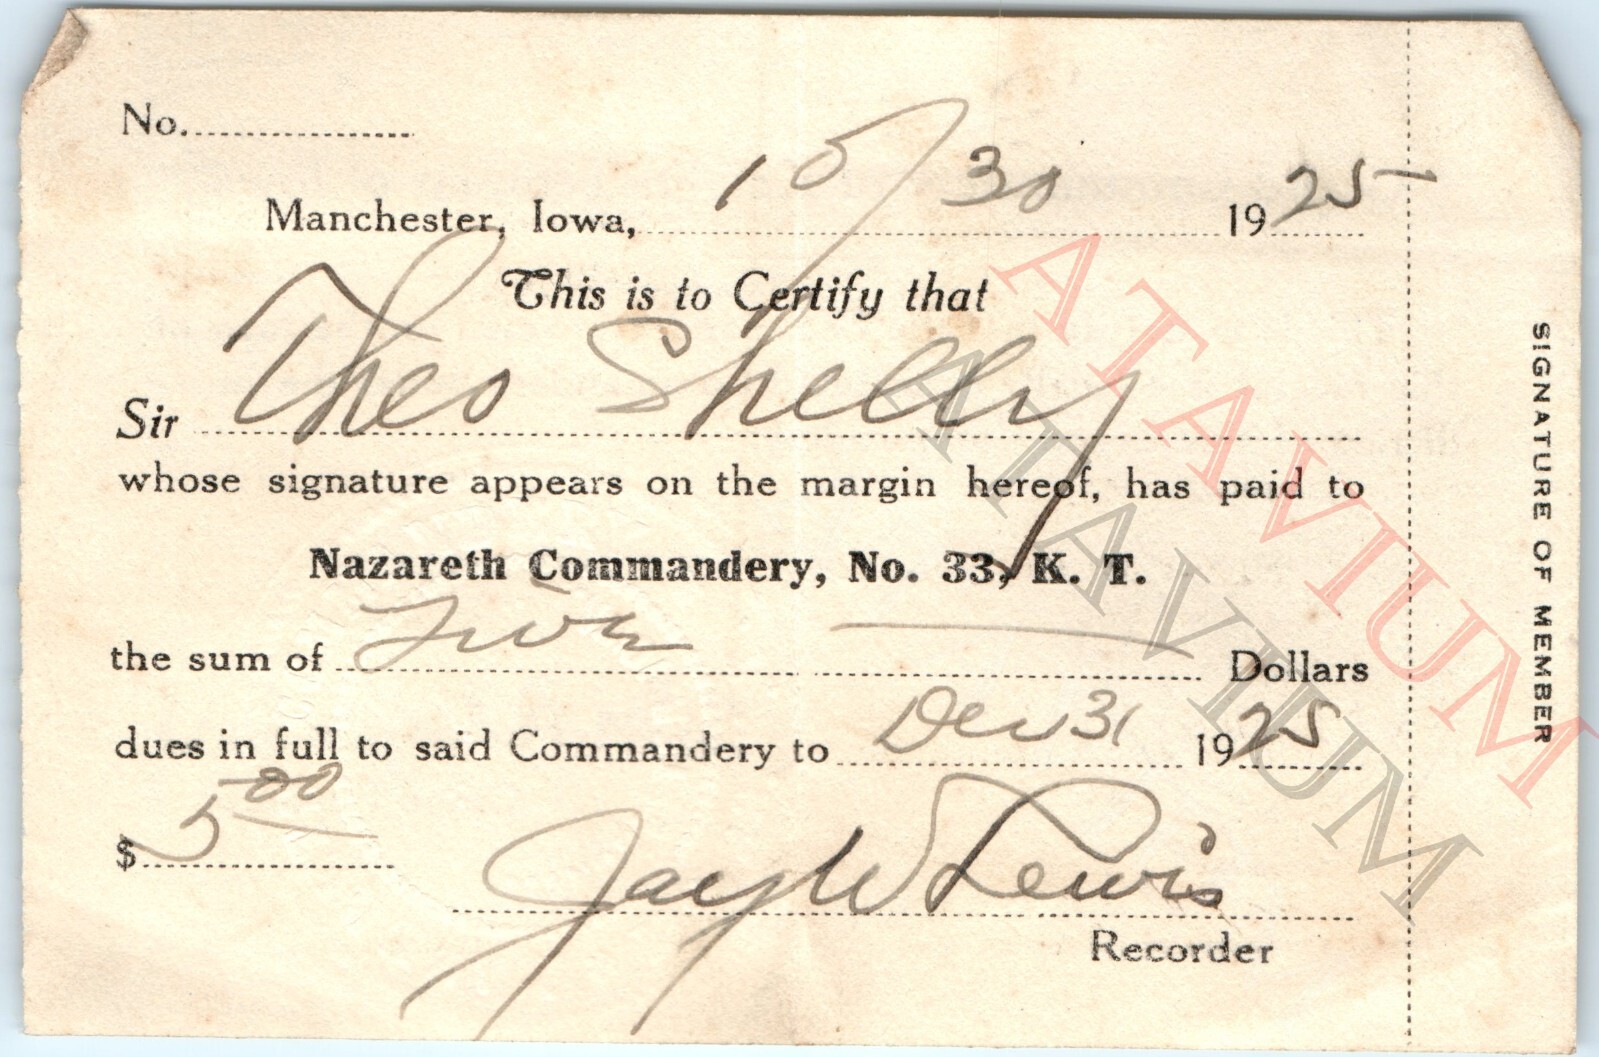 No.
Manchester, Iowa, 10/30 1925
This is to Certify that
Sir Theo Shelly
whose signature appears on the margin hereof, has paid to
Nazareth Commandery, No. 33, K. T.
the sum of Five Dollars
dues in full to said Commandery to Dec 31 1925
$ 5.00
Jay W Lewis
Recorder
SIGNATURE OF MEMBER
ATAVIUM
ATAVIUM